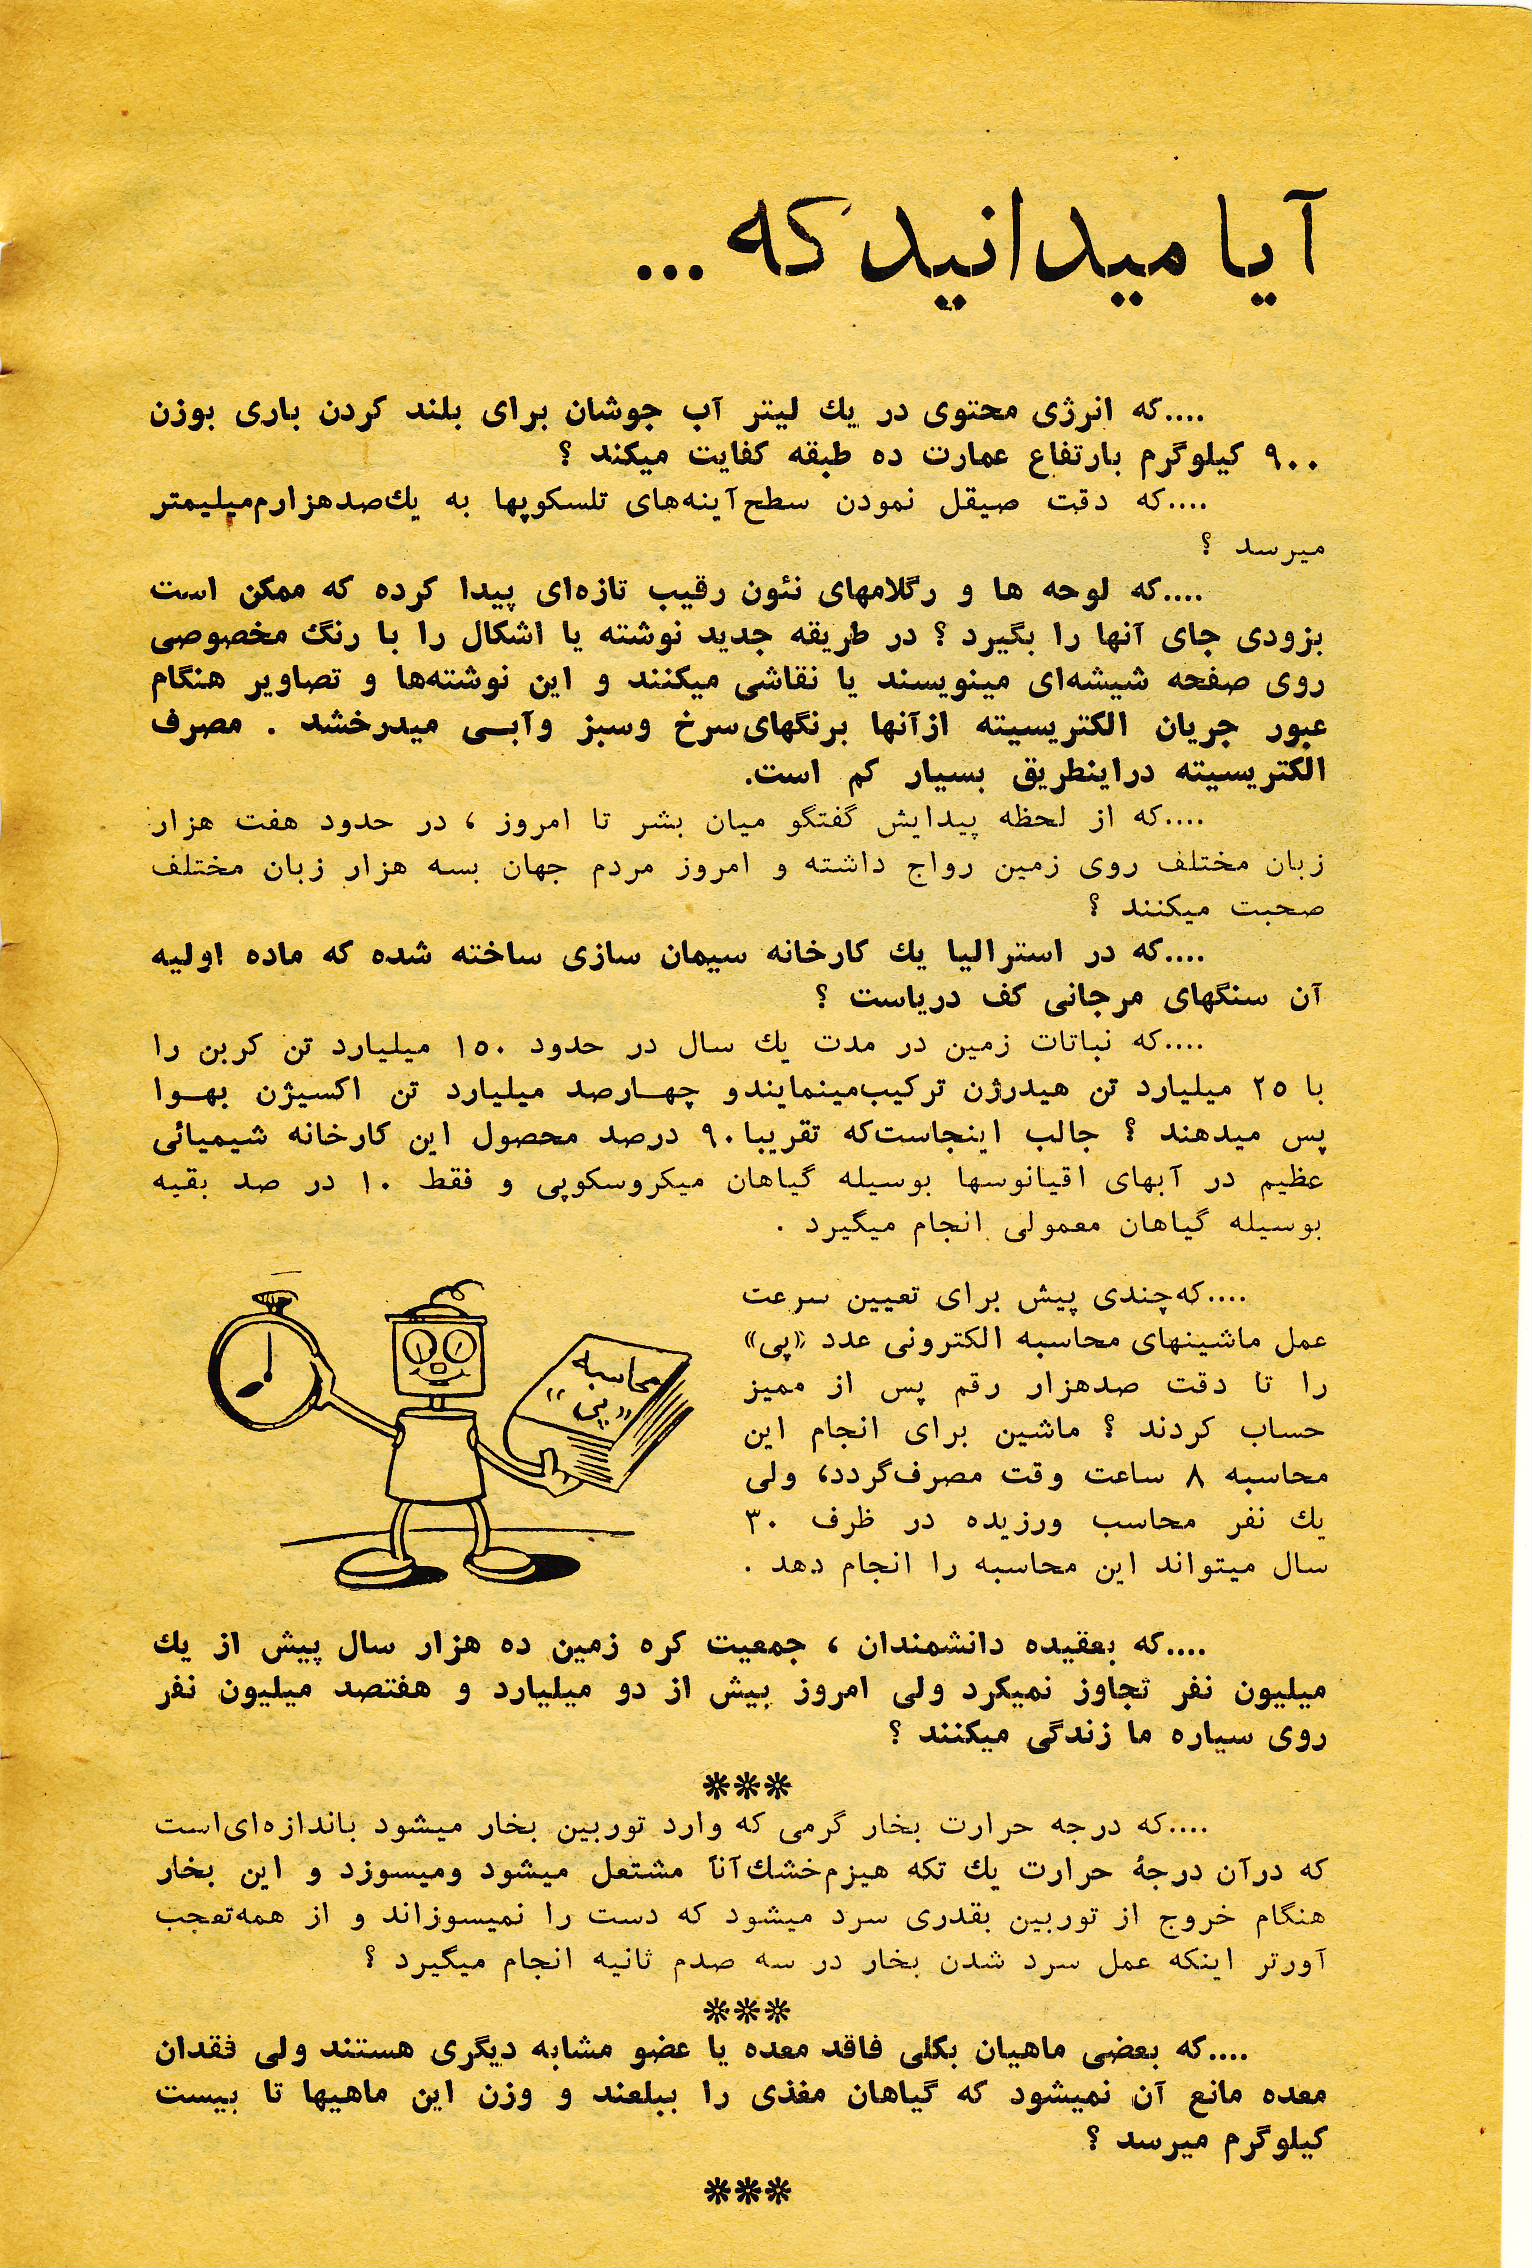 آیا میدانید که ...
....که انرژی محتوی در یك لیتر آب جوشان برای بلند کردن باری بوزن
۹۰۰ کیلوگرم بارتفاع عمارت ده طبقه کفایت میکند ؟
....که دقت صیقل نمودن سطح آینه‌های تلسکوپها به یك صدهزارم میلیمتر
میرسد ؟
....که لوحه ها و رگلامهای نئون رقیب تازه‌ای پیدا کرده که ممکن است
بزودی جای آنها را بگیرد ؟ در طریقه جدید نوشته یا اشکال را با رنگ مخصوصی
روی صفحه شیشه‌ای مینویسند یا نقاشی میکنند و این نوشته‌ها و تصاویر هنگام
عبور جریان الکتریسیته ازآنها برنگهای سرخ وسبز وآبی میدرخشد . مصرف
الکتریسیته دراینطریق بسیار کم است.
....که از لحظه پیدایش گفتگو میان بشر تا امروز ، در حدود هفت هزار
زبان مختلف روی زمین رواج داشته و امروز مردم جهان بسه هزار زبان مختلف
صحبت میکنند ؟
....که در استرالیا یك کارخانه سیمان سازی ساخته شده که ماده اولیه
آن سنگهای مرجانی کف دریاست ؟
....که نباتات زمین در مدت یك سال در حدود ۱۵۰ میلیارد تن کربن را
با ۲۵ میلیارد تن هیدرژن ترکیب مینمایند و چهارصد میلیارد تن اکسیژن بهوا
پس میدهند ؟ جالب اینجاست که تقریبا ۹۰ درصد محصول این کارخانه شیمیائی
عظیم در آبهای اقیانوسها بوسیله گیاهان میکروسکوپی و فقط ۱۰ در صد بقیه
بوسیله گیاهان معمولی انجام میگیرد .
....که چندی پیش برای تعیین سرعت
عمل ماشینهای محاسبه الکترونی عدد «پی»
را تا دقت صدهزار رقم پس از ممیز
حساب کردند ؟ ماشین برای انجام این
محاسبه ۸ ساعت وقت مصرف گردد، ولی
یك نفر محاسب ورزیده در ظرف ۳۰
سال میتواند این محاسبه را انجام دهد .
محاسبه
«پی»
....که بعقیده دانشمندان ، جمعیت کره زمین ده هزار سال پیش از یك
میلیون نفر تجاوز نمیکرد ولی امروز بیش از دو میلیارد و هفتصد میلیون نفر
روی سیاره ما زندگی میکنند ؟
***
....که درجه حرارت بخار گرمی که وارد توربین بخار میشود باندازه‌ای است
که درآن درجهٔ حرارت یك تکه هیزم خشك آناً مشتعل میشود ومیسوزد و این بخار
هنگام خروج از توربین بقدری سرد میشود که دست را نمیسوزاند و از همه تعجب
آورتر اینکه عمل سرد شدن بخار در سه صدم ثانیه انجام میگیرد ؟
***
....که بعضی ماهیان بکلی فاقد معده یا عضو مشابه دیگری هستند ولی فقدان
معده مانع آن نمیشود که گیاهان مغذی را ببلعند و وزن این ماهیها تا بیست
کیلوگرم میرسد ؟
***